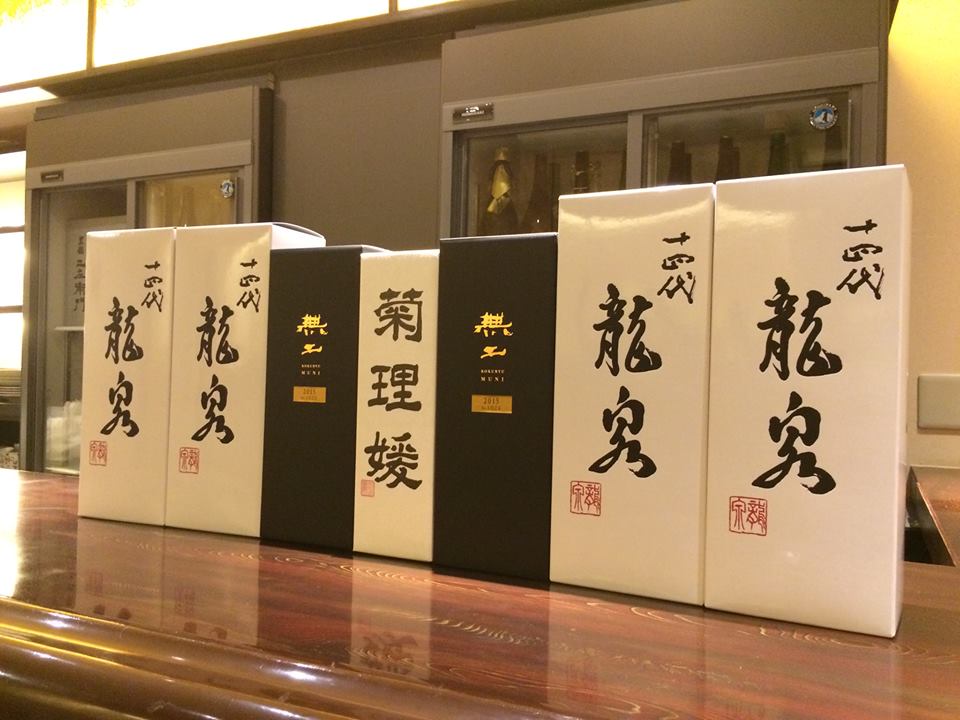 十四代
龍泉
十四代
龍泉
無二
KOKURYU
MUNI
2015
菊理媛
無二
KOKURYU
MUNI
2015
十四代
龍泉
龍泉
十四代
龍泉
龍泉